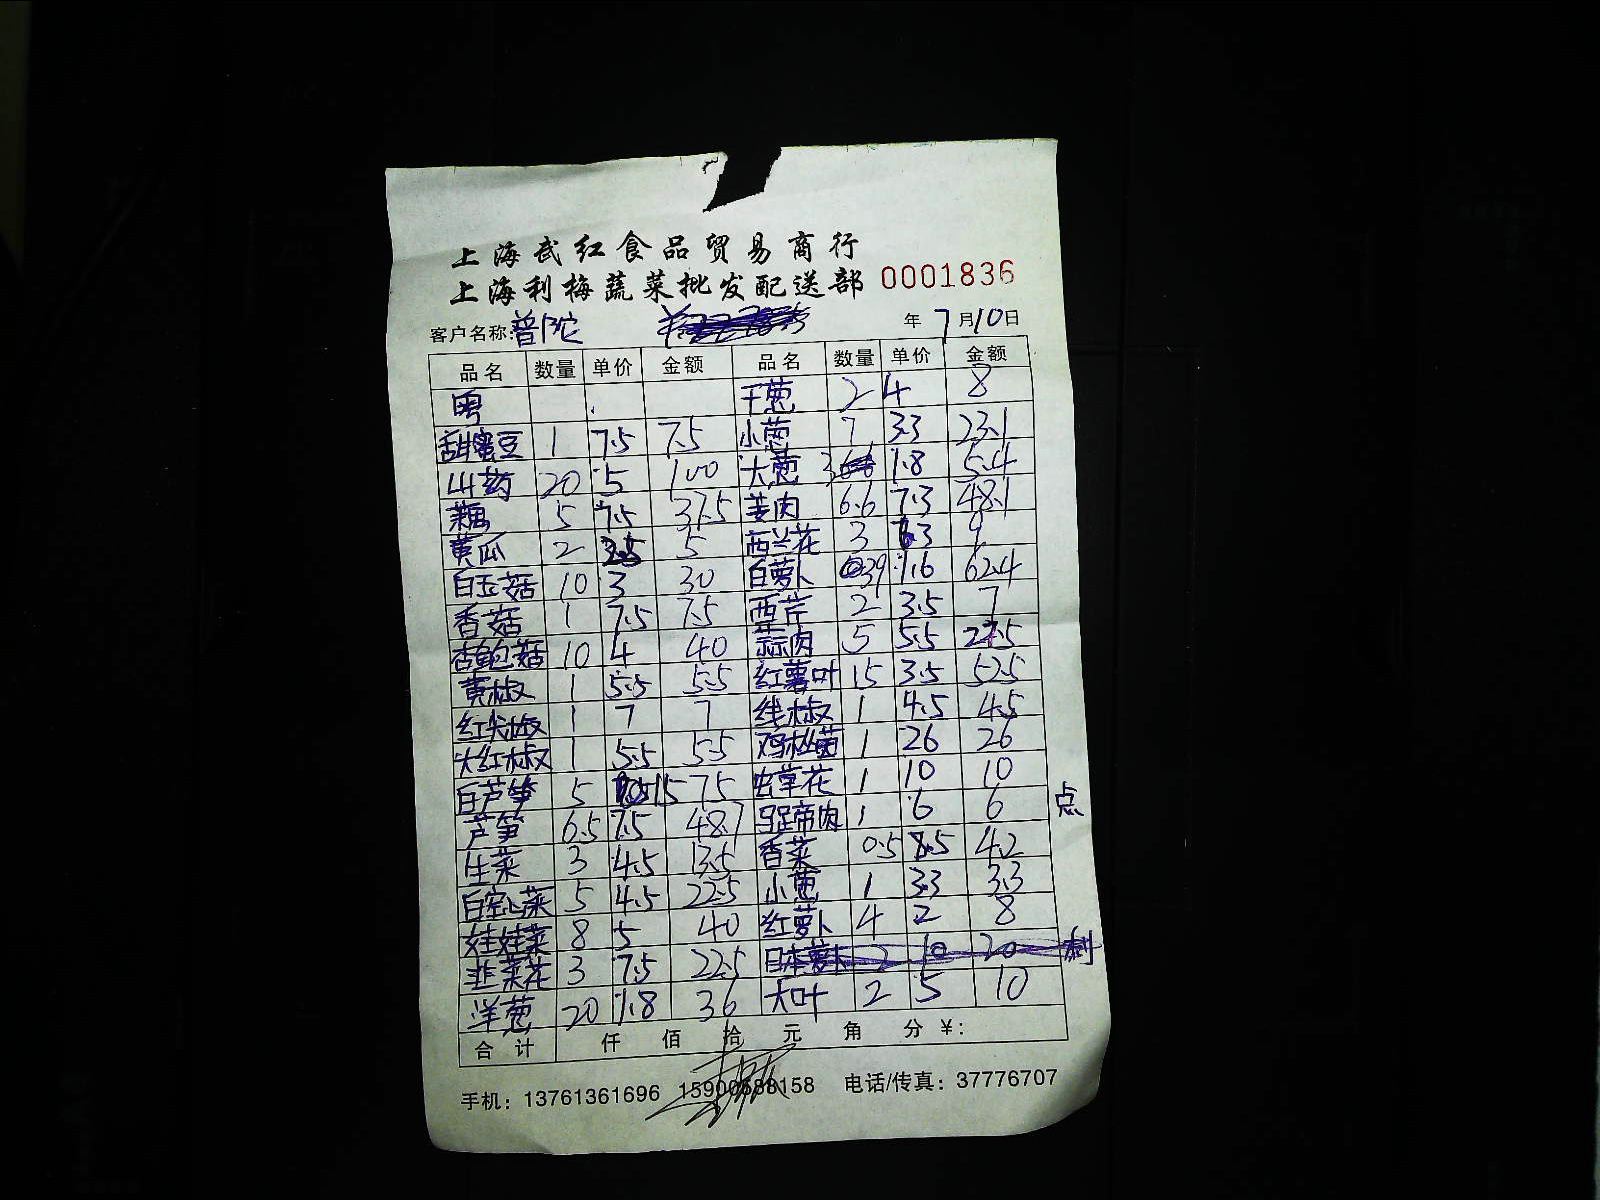 上海武红食品贸易商行
上海利梅蔬菜批发配送部 0001836
客户名称:普陀 年 7 月 10 日
品名 数量 单价 金额 品名 数量 单价 金额
粤 干葱 2 4 8
甜蜜豆 1 7.5 7.5 小葱 7 3.3 23.1
山药 20 5 100 大葱 3 1.8 5.4
藕 5 7.5 37.5 姜肉 6.6 7.3 48.1
黄瓜 2 2.5 5 西兰花 3 3 9
白玉菇 10 3 30 白萝卜 39 1.6 62.4
香菇 1 7.5 7.5 西芹 2 3.5 7
杏鲍菇 10 4 40 蒜肉 5 5.5 27.5
黄椒 1 5.5 5.5 红薯叶 15 3.5 52.5
红尖椒 1 7 7 线椒 1 4.5 4.5
大红椒 1 5.5 5.5 鸡枞菌 1 26 26
白芦笋 5 15 75 虫草花 1 10 10
芦笋 6.5 7.5 48.7 马蹄肉 1 6 6 点
生菜 3 4.5 13.5 香菜 0.5 8.5 4.2
白空心菜 5 4.5 22.5 小葱 1 3.3 3.3
娃娃菜 8 5 40 红萝卜 4 2 8
韭菜花 3 7.5 22.5 日本萝卜 2 10 20
洋葱 20 1.8 36 大叶 2 5 10
合计 仟 佰 拾 元 角 分 ¥:
手机：13761361696 15900688158 电话/传真：37776707